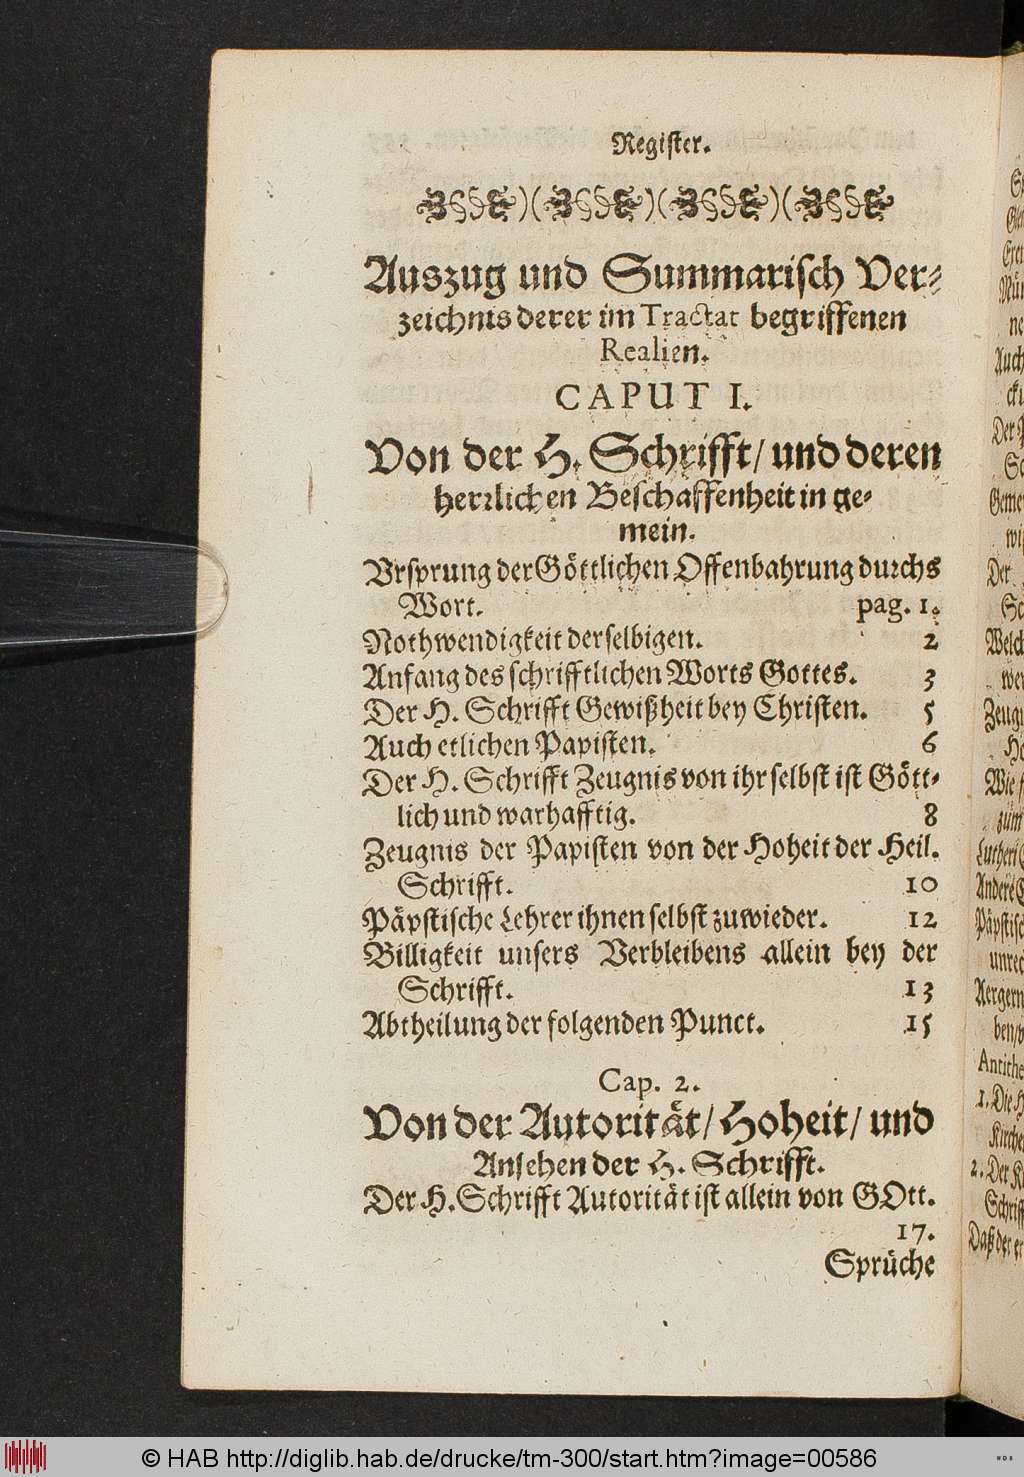 Register.
Auszug und Summarisch Ver-
zeichnis derer im Tractat begriffenen
Realien.
CAPUT I.
Von der H. Schrifft/ und deren
herrlichen Beschaffenheit in ge-
mein.
Vrsprung der Göttlichen Offenbahrung durchs
Wort. pag. 1.
Nothwendigkeit derselbigen. 2
Anfang des schrifftlichen Worts Gottes. 3
Der H. Schrifft Gewißheit bey Christen. 5
Auch etlichen Papisten. 6
Der H. Schrifft Zeugnis von ihr selbst ist Gött-
lich und warhafftig. 8
Zeugnis der Papisten von der Hoheit der Heil.
Schrifft. 10
Päpstische Lehrer ihnen selbst zuwieder. 12
Billigkeit unsers Verbleibens allein bey der
Schrifft. 13
Abtheilung der folgenden Punct. 15
Cap. 2.
Von der Autorität/ Hoheit/ und
Ansehen der H. Schrifft.
Der H. Schrifft Autorität ist allein von GOtt.
17.
Sprüche
© HAB http://diglib.hab.de/drucke/tm-300/start.htm?image=00586